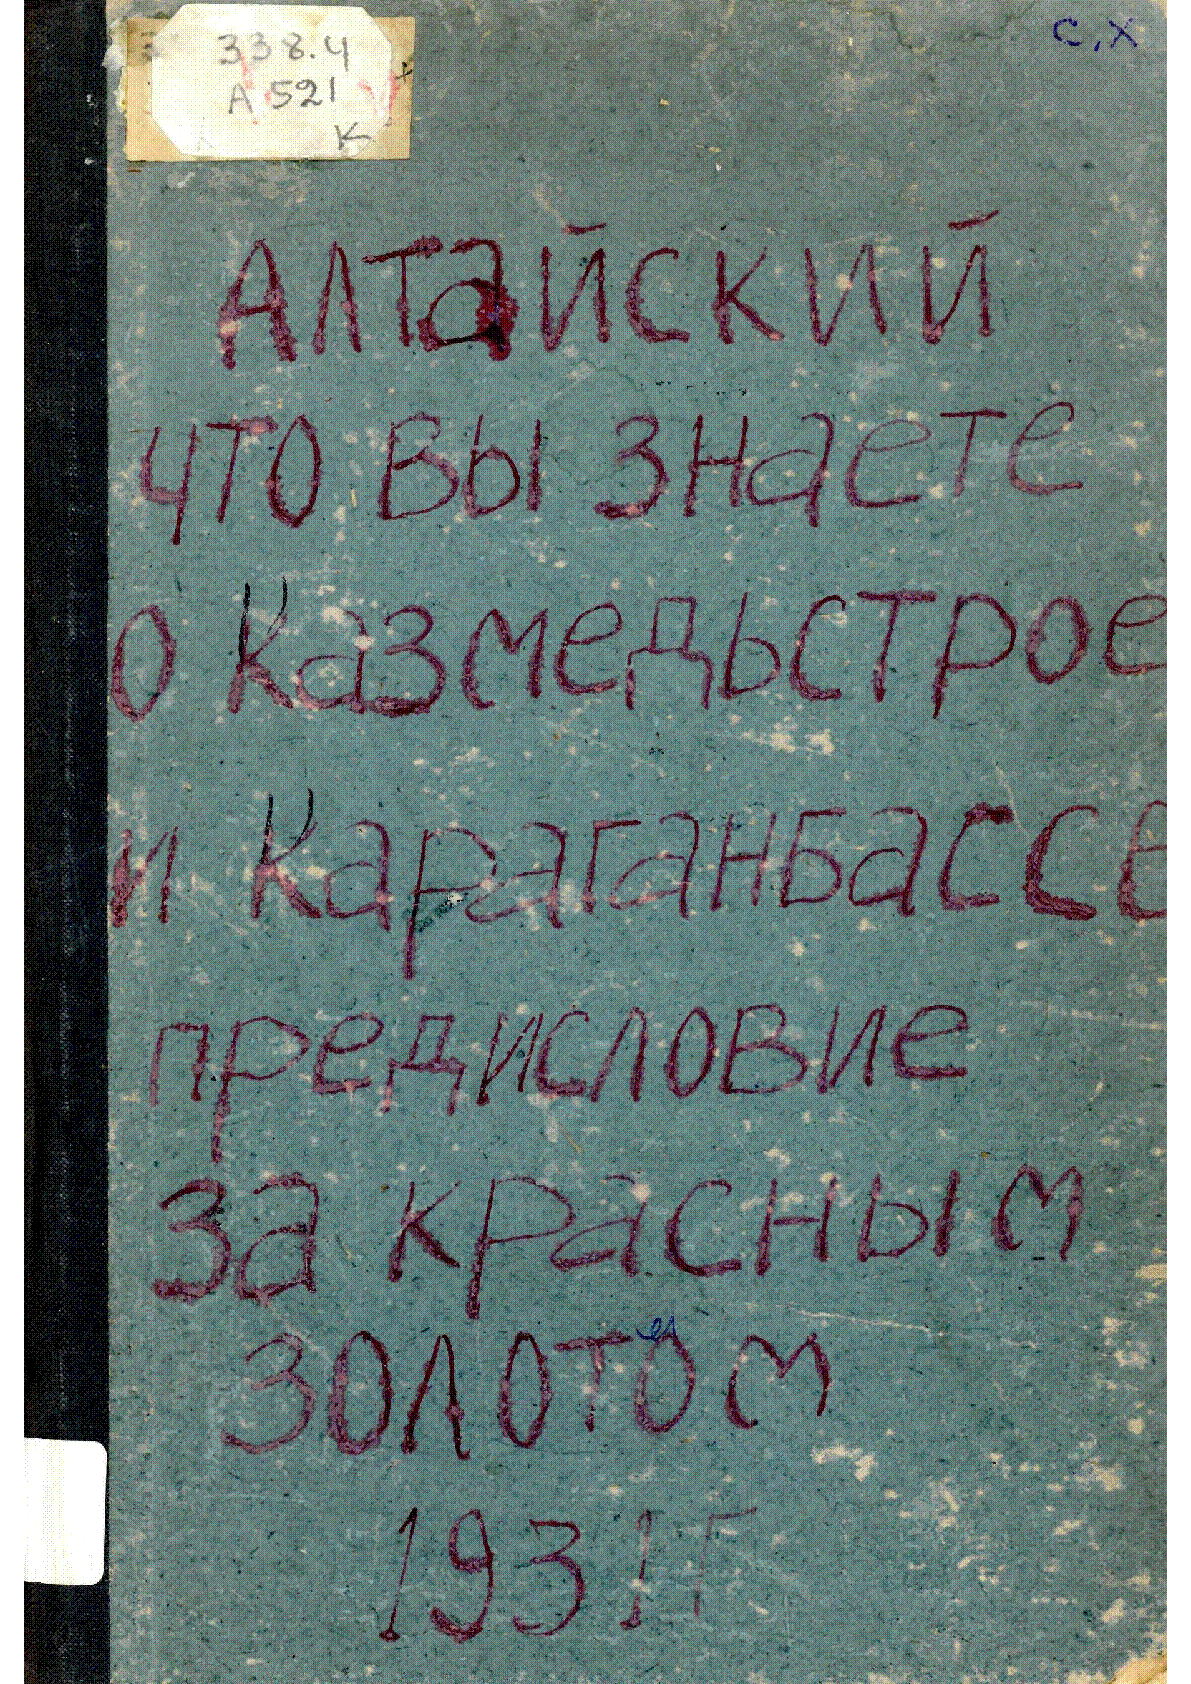 338.4
А 521
К
с.х
Алтайский
что вы знаете
о Казмедьстрое
и Караганбассе
предисловие
за красным
золотом
1931г